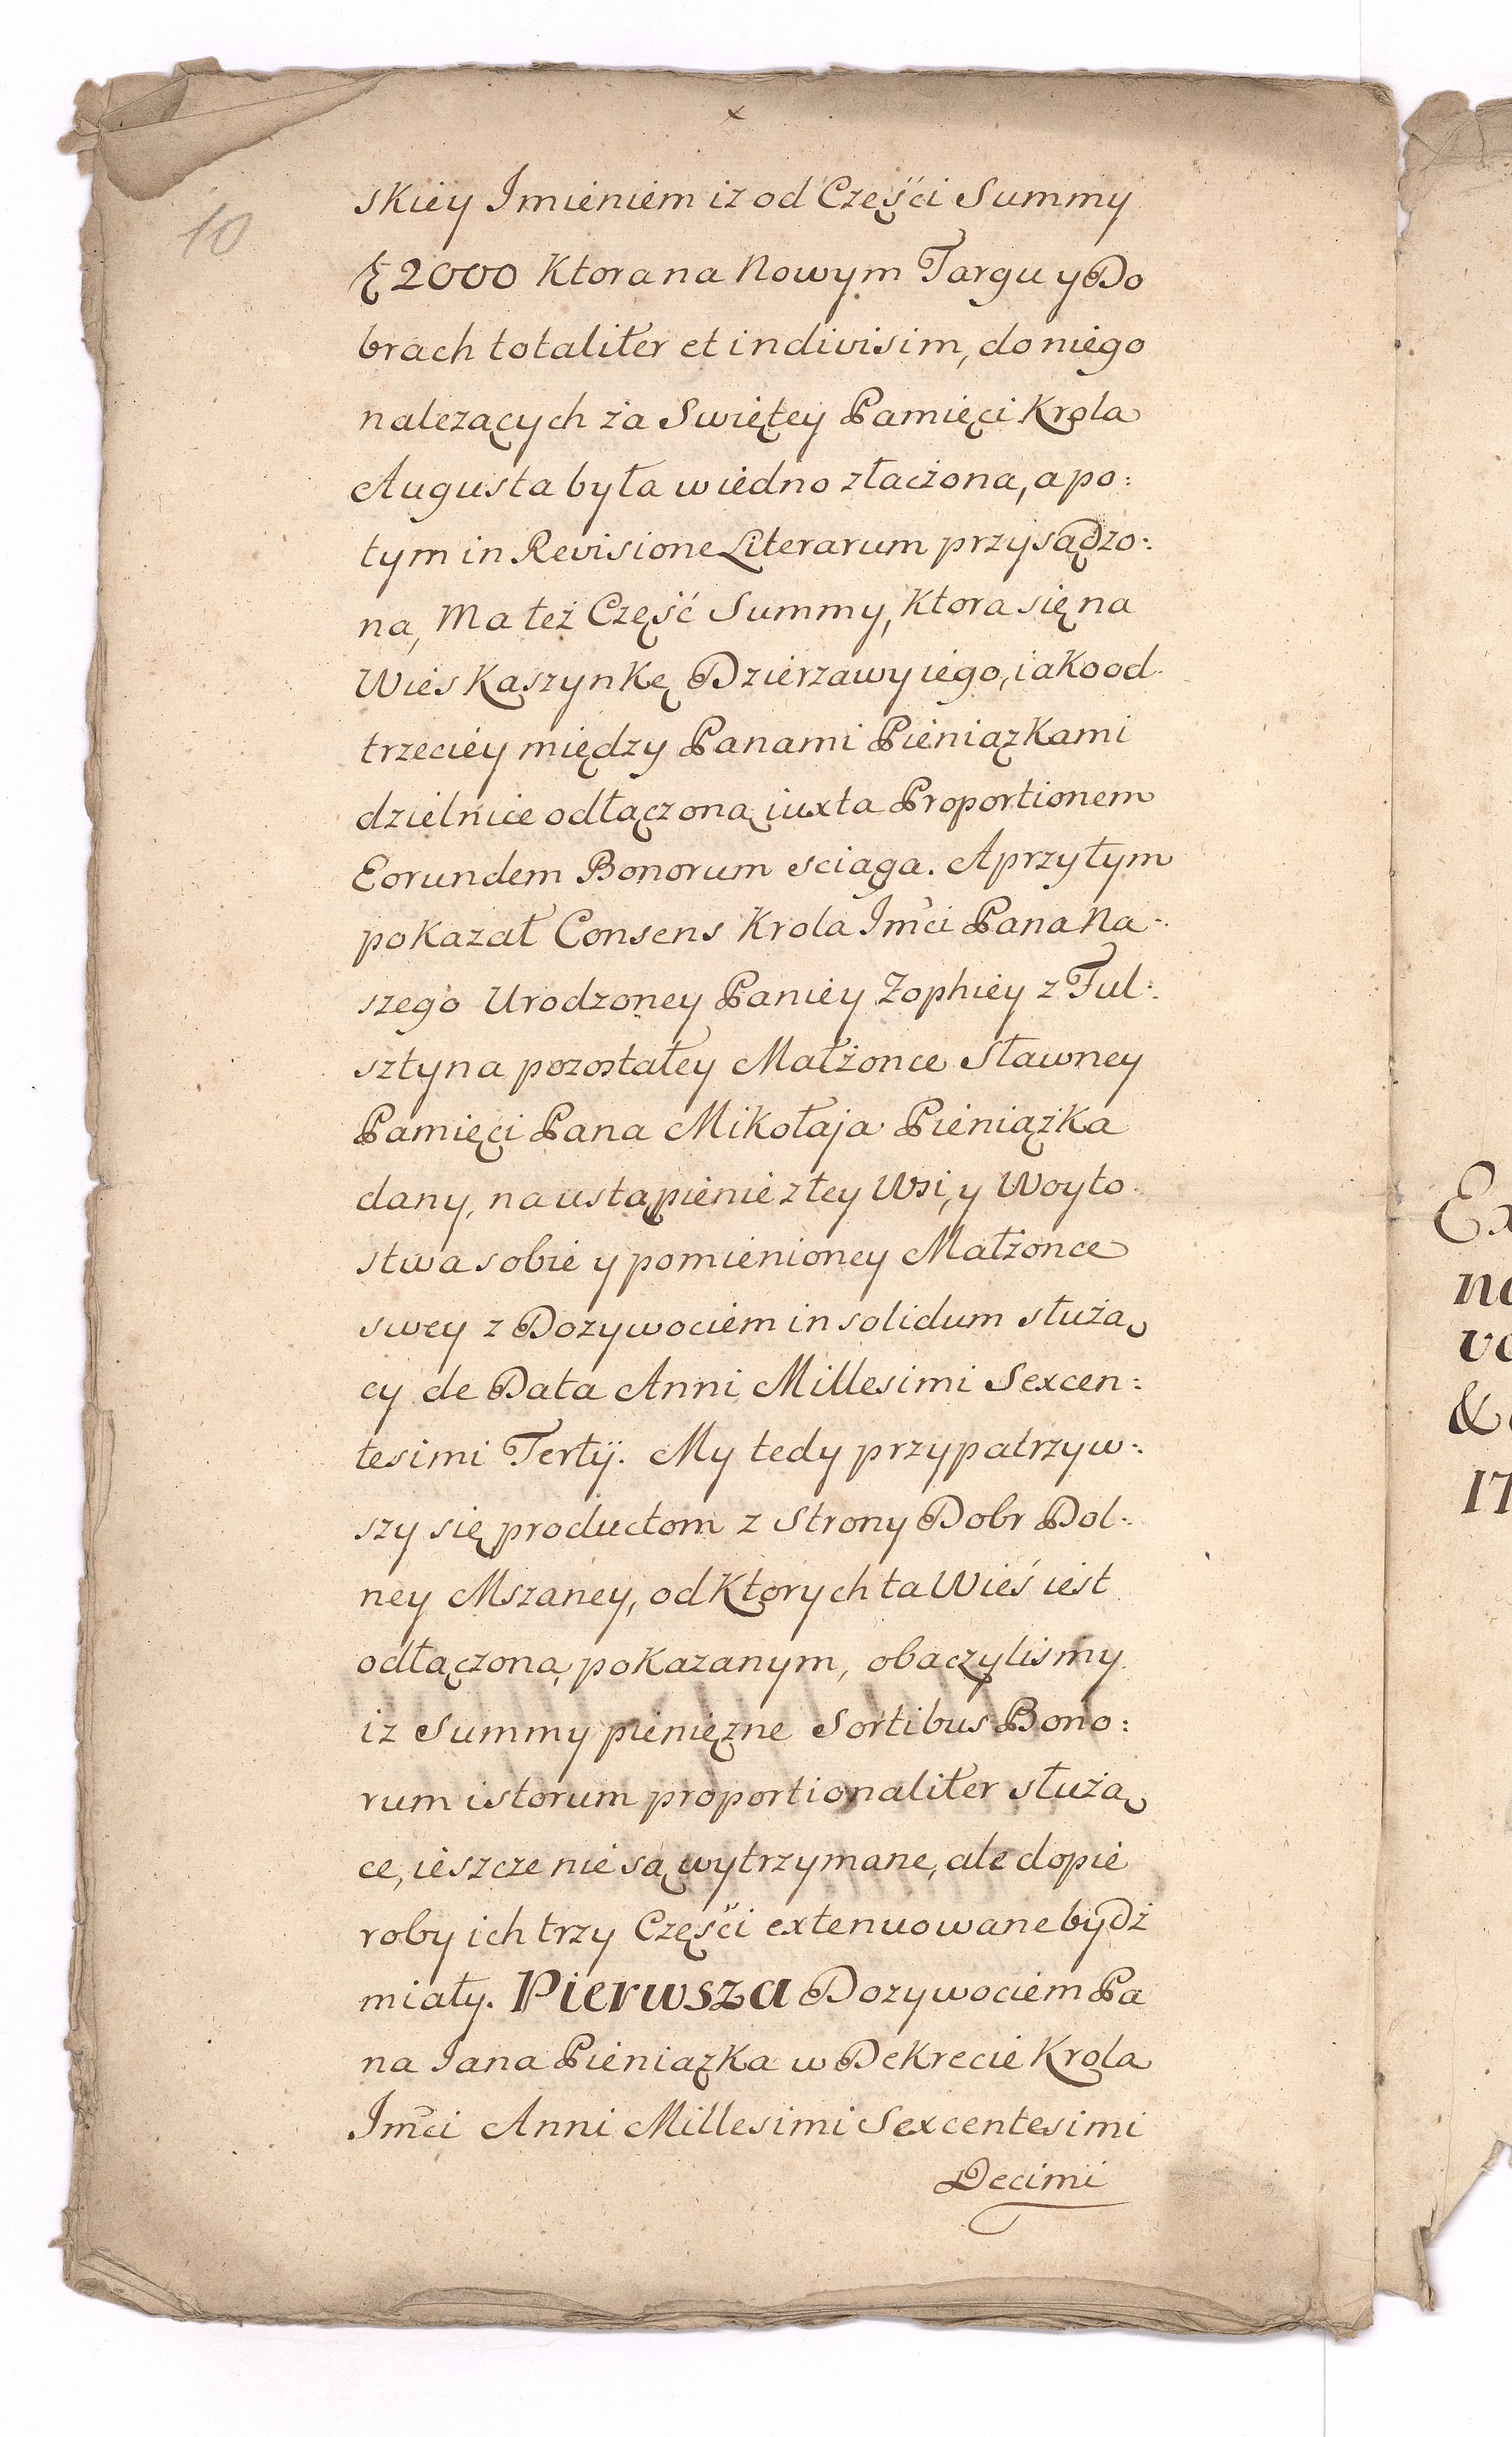 10
x
skiey Imieniem iz od Częśći Summy
2000 Ktora na Nowym Targu y Do
brach totaliter et indivisim, do niego
nalezących źa Swiętey Pamięci Krola
Augusta była w iedno złaczona, a po:
tym in Revisione Literarum przysądzo:
na, Ma też Część Summy, Ktora się na
Wies Kaszynkę Dzierzawy iego, iako od
trzeciey między Panami Pieniązkami
dzielnice odłączoną iuxta Proportionem
Eorundem Bonorum sciaga. A przytym
pokazał Consens Krola Jmći Pana Na:
szego Urodzoney Paniey Zophiey z Ful:
sztyna pozostałey Małżonce Sławney
Pamięci Pana Mikołaja Pieniążka
dany, na ustąpienie z tey Wsi, y Woyto
stwa sobie y pomienioney Małżonce
swey z Dozywociem in solidum służą
cy de Data Anni Millesimi Sexcen:
tesimi Tertÿ. My tedy przypatrzyw:
szy się productom z Strony Dobr Dol:
ney Mszaney, od Ktorych ta Wieś iest
odłączoną, pokazanym, obaczylismy
iz Summy pieniężne Sortibus Bono:
rum istorum proportionaliter służą
ce, ieszcze nie są wytrzymane, ale dopie
roby ich trzy Częśći extenuowane bydź
miały. Pierwsza Dozywociem Pa
na Jana Pieniązka w Dekrecie Krola
Jmći Anni Millesimi Sexcentesimi
Decimi
Ex
17